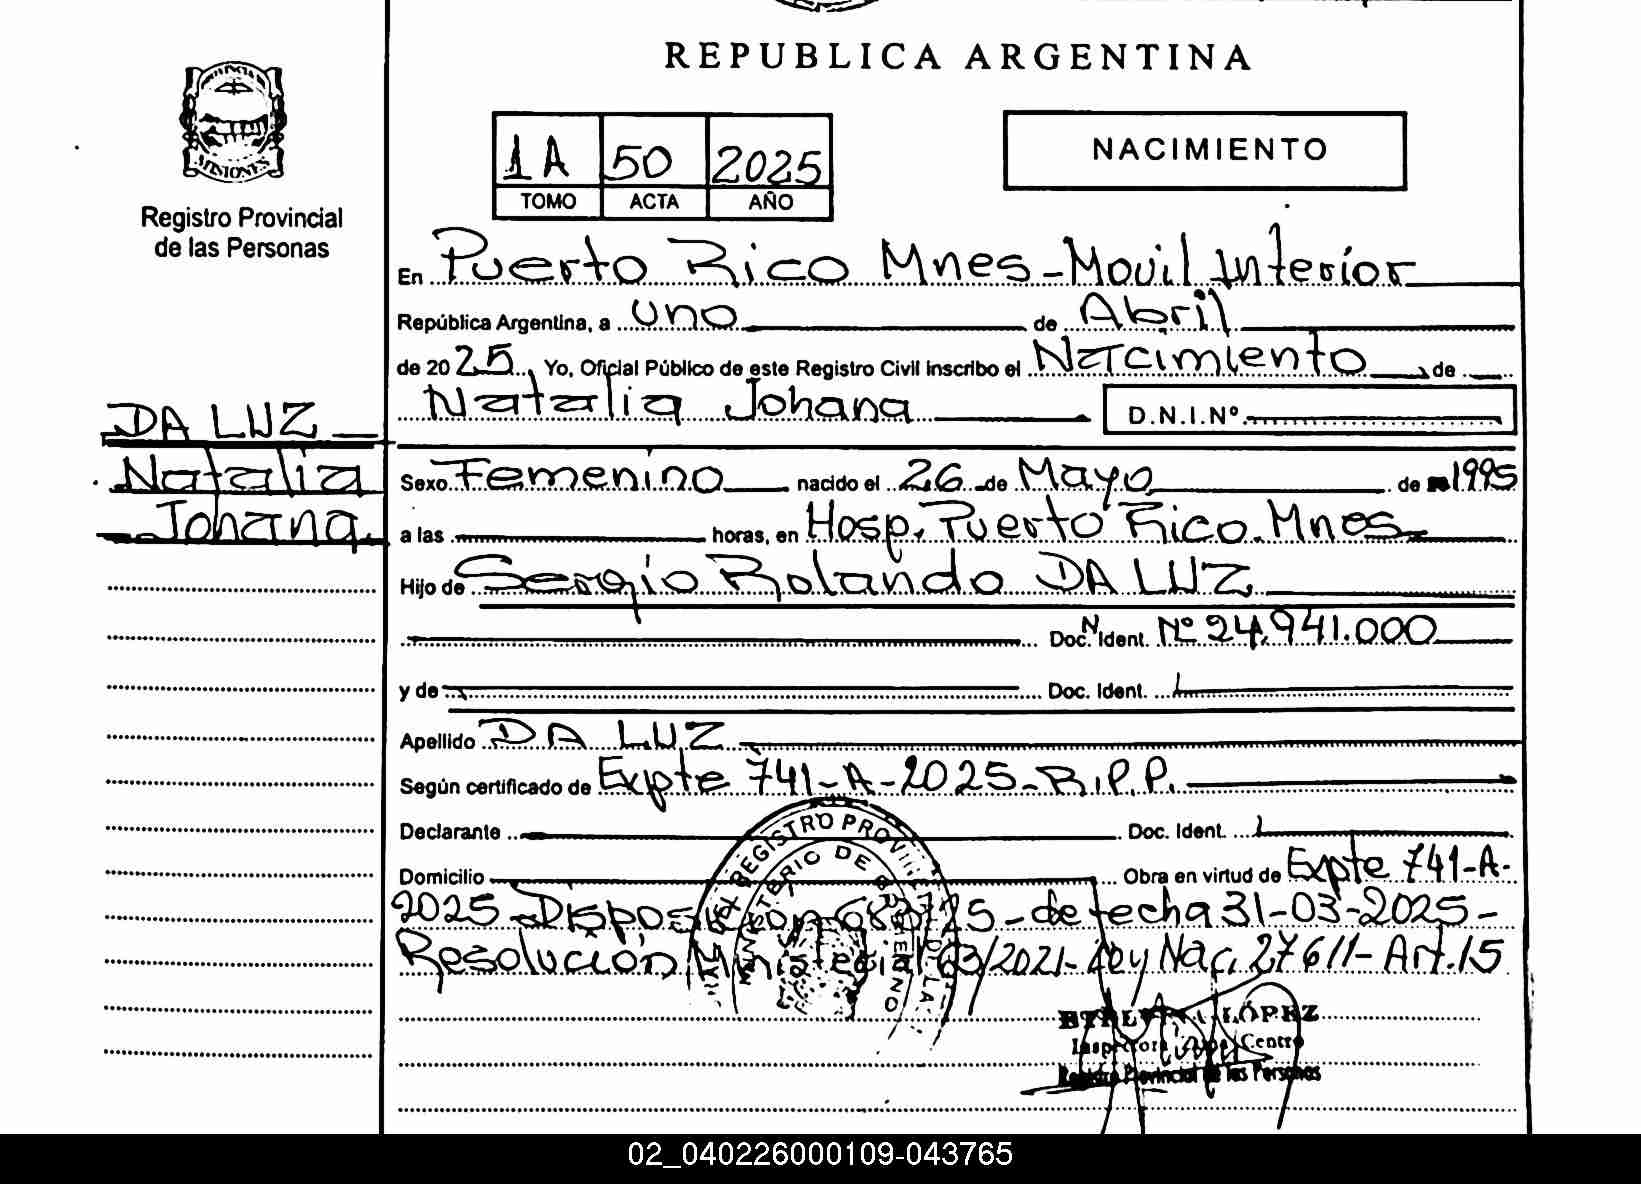 REPUBLICA ARGENTINA
PROVINCIA
MISIONES
Registro Provincial
de las Personas
1A 50 2025
TOMO ACTA AÑO
NACIMIENTO
En Puerto Rico Mnes-Movil Interior
República Argentina, a uno de Abril
de 2025, Yo, Oficial Público de este Registro Civil inscribo el Nacimiento de
Natalia Johana D.N.I.Nº
DA LUZ
Natalia
Johana.
Sexo Femenino nacido el 26 de Mayo de 1995
a las horas, en Hosp. Puerto Rico. Mnes
Hijo de Sergio Rolando DA LUZ
Doc. N. Ident. Nº 24.941.000
y de Doc. Ident.
Apellido DA LUZ
Según certificado de Expte 741-A-2025-R.P.P.
Declarante Doc. Ident.
Domicilio Obra en virtud de Expte 741-A-
2025-Disposicion 683/25-de fecha 31-03-2025-
Resolución Ministerial 63/2021-Ley Nac. 27611-Art.15
REGISTRO PROVIN
MINISTERIO DE GOBIERNO
DE LA
LÓPEZ
Inspectora Centro
Registro Provincial de las Personas
02_040226000109-043765